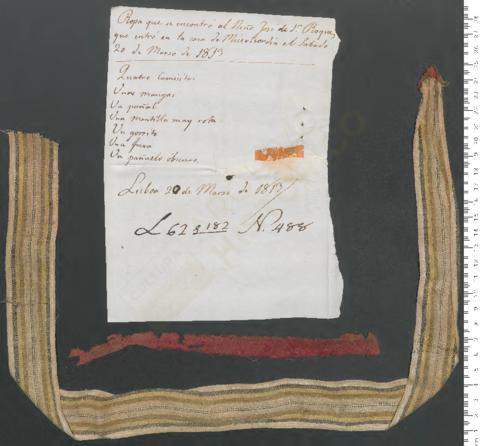 Ropa que se encontró al Niño José de Sn. Roque,
que entró en la casa de Misericordia el Sabado
20 de Marzo de 1813
Quatro Camisitas
Unas mangas
Un pañal
Una mantilla muy rota
Un gorrito
Una faxa
Un pañuelo obscuro.
Lisboa 20 de Marzo de 1813
L 62 a 182 N. 488